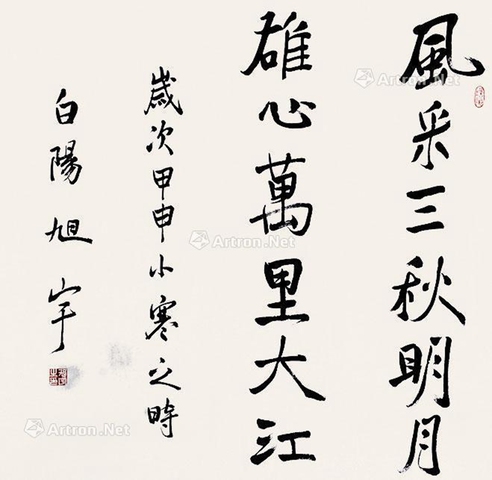 風采三秋明月
雄心萬里大江
歲次甲申小寒之時
白陽旭宇
Artron.Net
Artron.Net
Artron.Net
Artron.Net